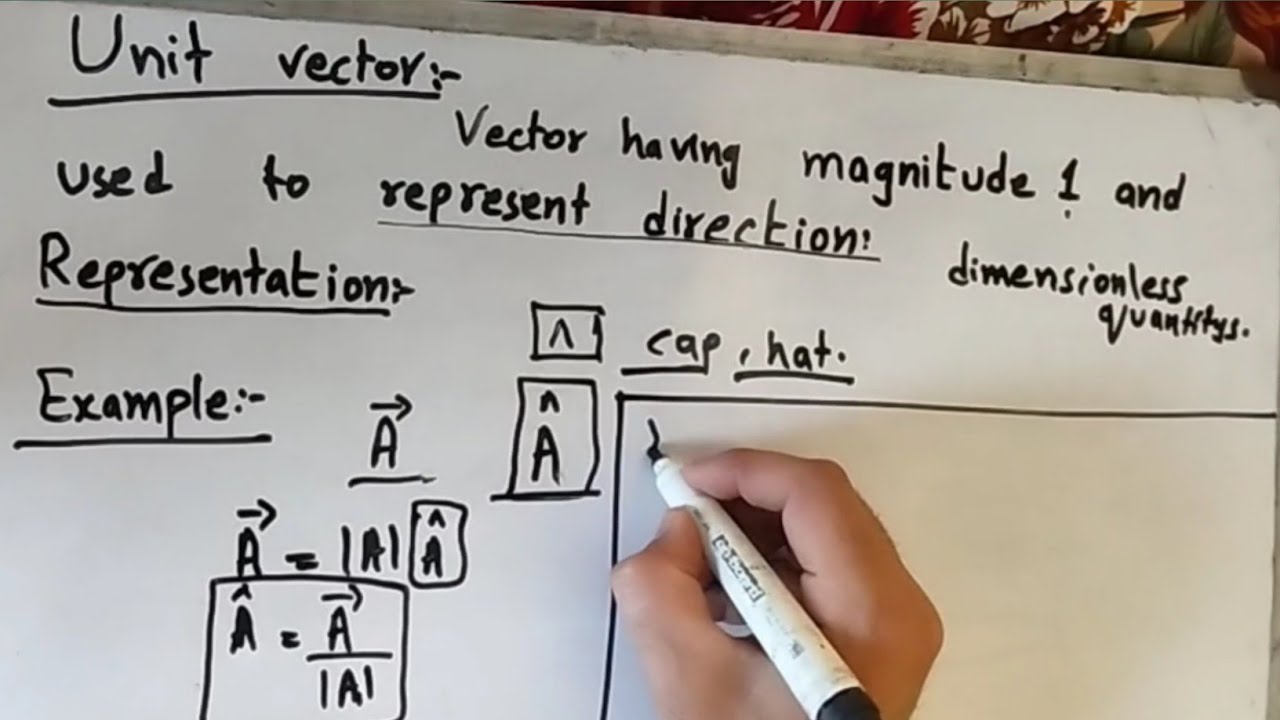 Unit vector:-
Vector having magnitude 1 and
used to represent direction:
dimensionless
quantitys.
Representation:-
^ cap, hat.
Example:-
A⃗ Â
A⃗ = |A| Â
Â = A⃗
|A|